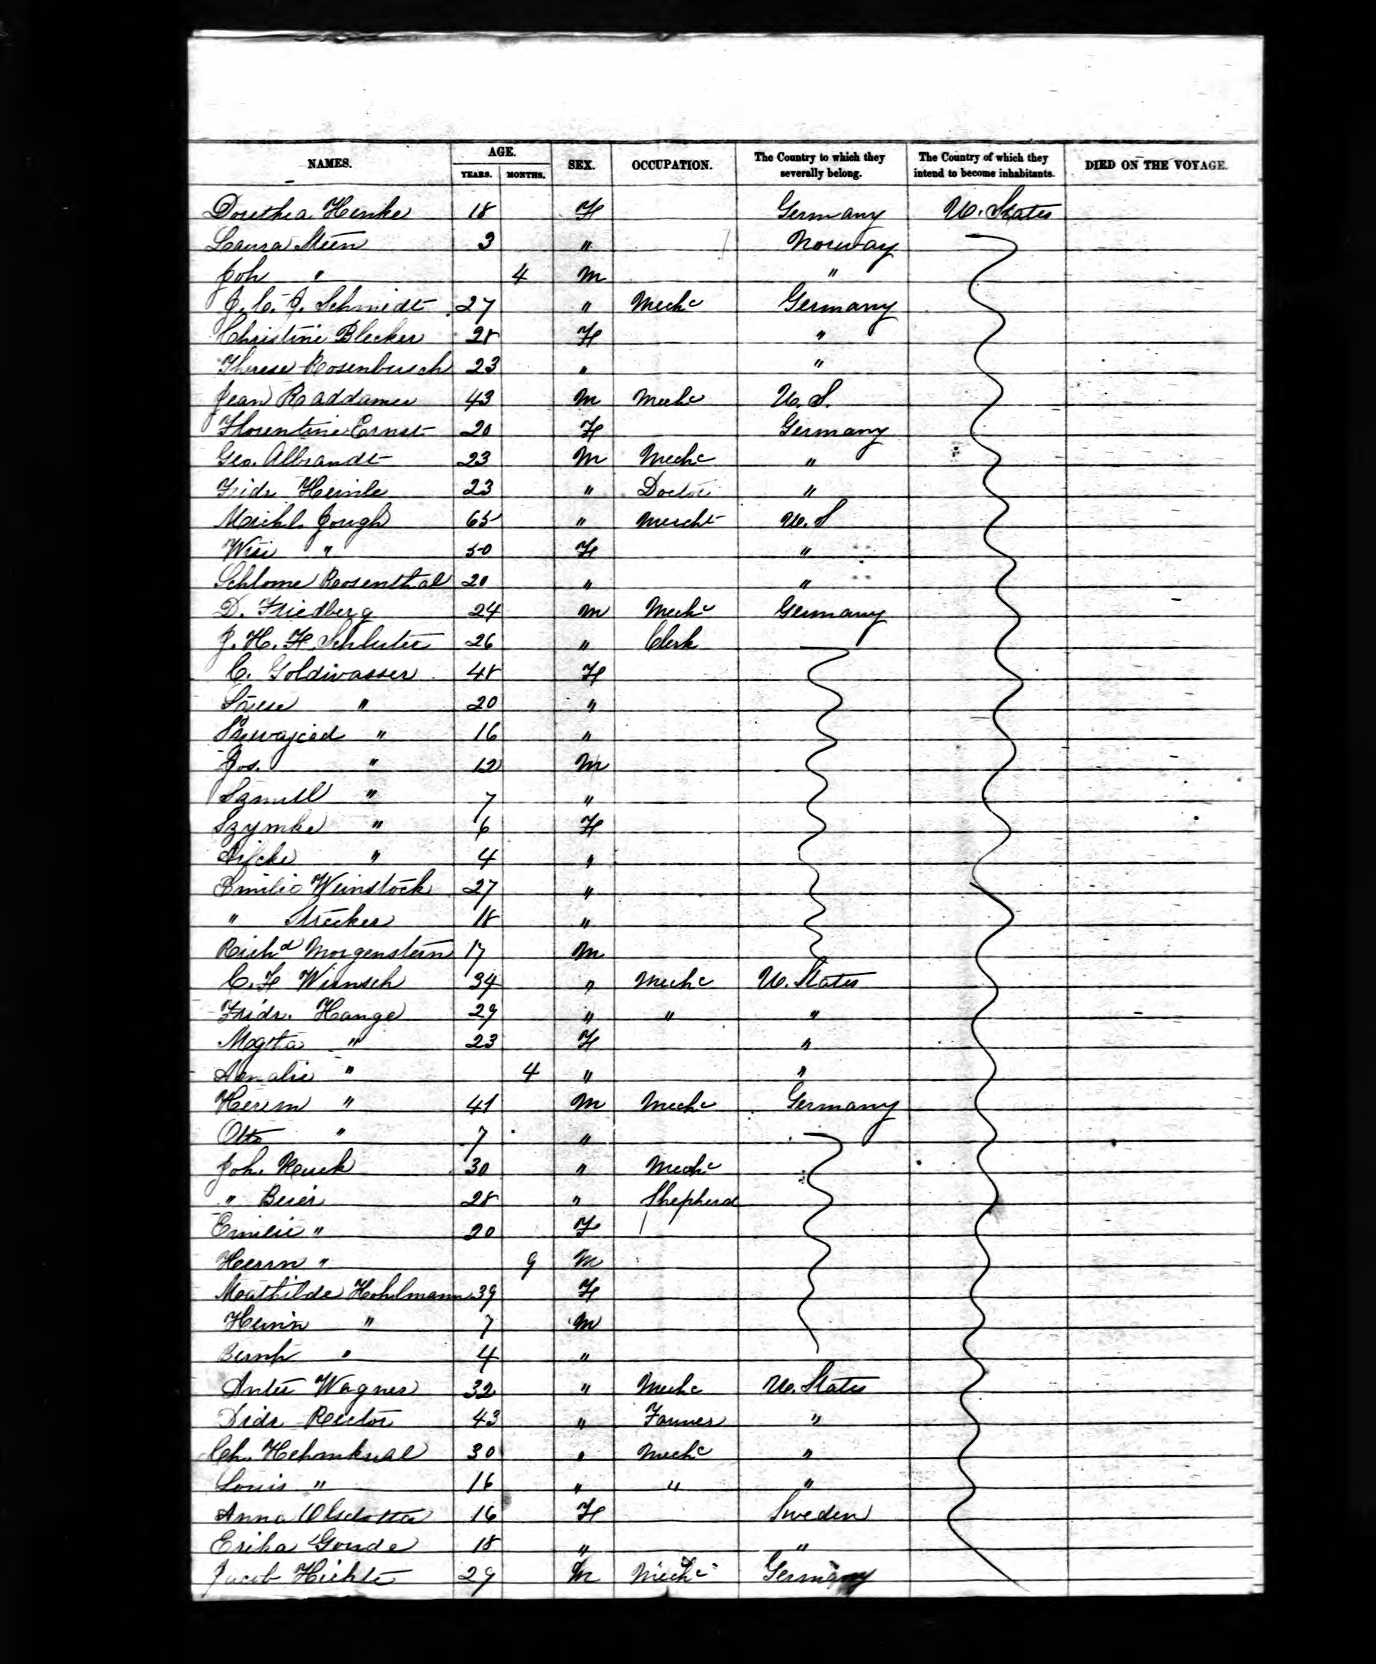 NAMES. AGE. SEX. OCCUPATION. The Country to which they severally belong. The Country of which they intend to become inhabitants. DIED ON THE VOYAGE.
YEARS. MONTHS.
Dorethea Henke 18 F Germany U. States
Laura Meen 3 " Norway
Joh " 4 M "
J. C. J. Schmidt 27 " Mechc Germany
Christine Blecker 28 F "
Therese Rosenbusch 23 " "
Jean Raddamer 43 M Mechc U. S.
Florentine Ernst 20 F Germany
Geo. Albrandt 23 M Mechc "
Fridr Heinle 23 " Doctor "
Michl. Jough 65 " Mercht U. S
" 50 F "
Schlome Rosenthal 20 " "
D. Friedberg 24 M Mechc Germany
J. H. F. Schluter 26 " Clerk
C. Goldwasser 48 F
" 20 "
" 16 "
Jos. " 12 M
Samuel " 7 "
Szymke " 6 F
" 4 "
Emilie Weinstock 27 "
" Strecker 18 "
Richd Morgenstern 17 M
C. F Wunsch 34 " Mechc U. States
Fridr. Hange 29 " " "
Magta " 23 F "
Amalie " 4 " "
Herm " 41 M Mechc Germany
Otto " 7 "
Joh. Keuck 30 " Mechc
" Beier 28 " Shepherd
Emilie " 20 F
Herrn " 9 M
Mathilde Hohlmann 39 F
Heinr " 7 M
Bernh " 4 "
Wagner 32 " Mechc U. States
Didr Rector 43 " Farmer "
Ch. 30 " Mechc "
Louis " 16 " " "
Anna Olsdotta 16 F Sweden
Erika Gonde 18 " "
Jacob Hichte 29 M Mechc Germany